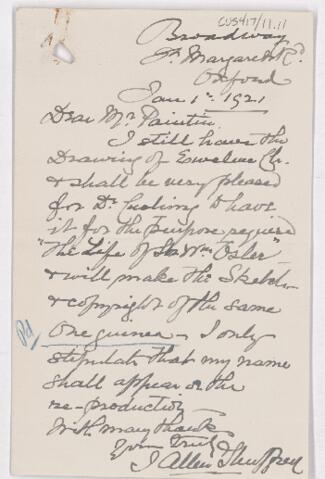 CUS417/11.11
Broadway
St. Margaret's Rd.
Oxford
Jan 1st 1921
Dear Mr. Painting
I still have the
Drawing of Ewelme Ch.
& shall be very pleased
for Dr. Cushing to have
it for the purpose required
"The Life of Sir Wm. Osler"
& will make the Sketch
& copyright of the same
one guinea - I only
Pd
stipulate that my name
shall appear on the
re-production
With many thanks
Yours truly
J Allen Shuffrey